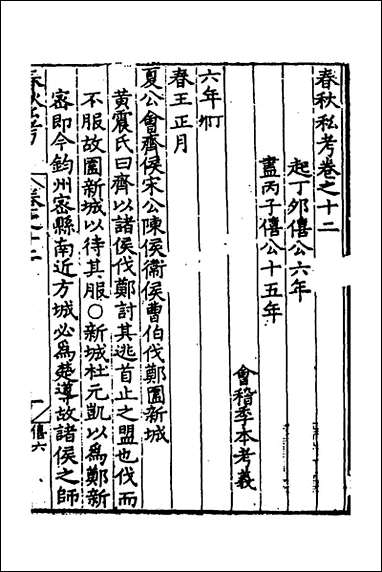 春秋私考卷之十二
起丁夘僖公六年
盡丙子僖公十五年
會稽季本考義
六年
春王正月
夏公會齊侯宋公陳侯衞侯曹伯伐鄭圍新城
黄震氏曰齊以諸侯伐鄭討其逃首止之盟也伐而
不服故圍新城以待其服○新城杜元凱以爲鄭新
密即今鈞州密縣南近方城必爲楚導故諸侯之師
僖六